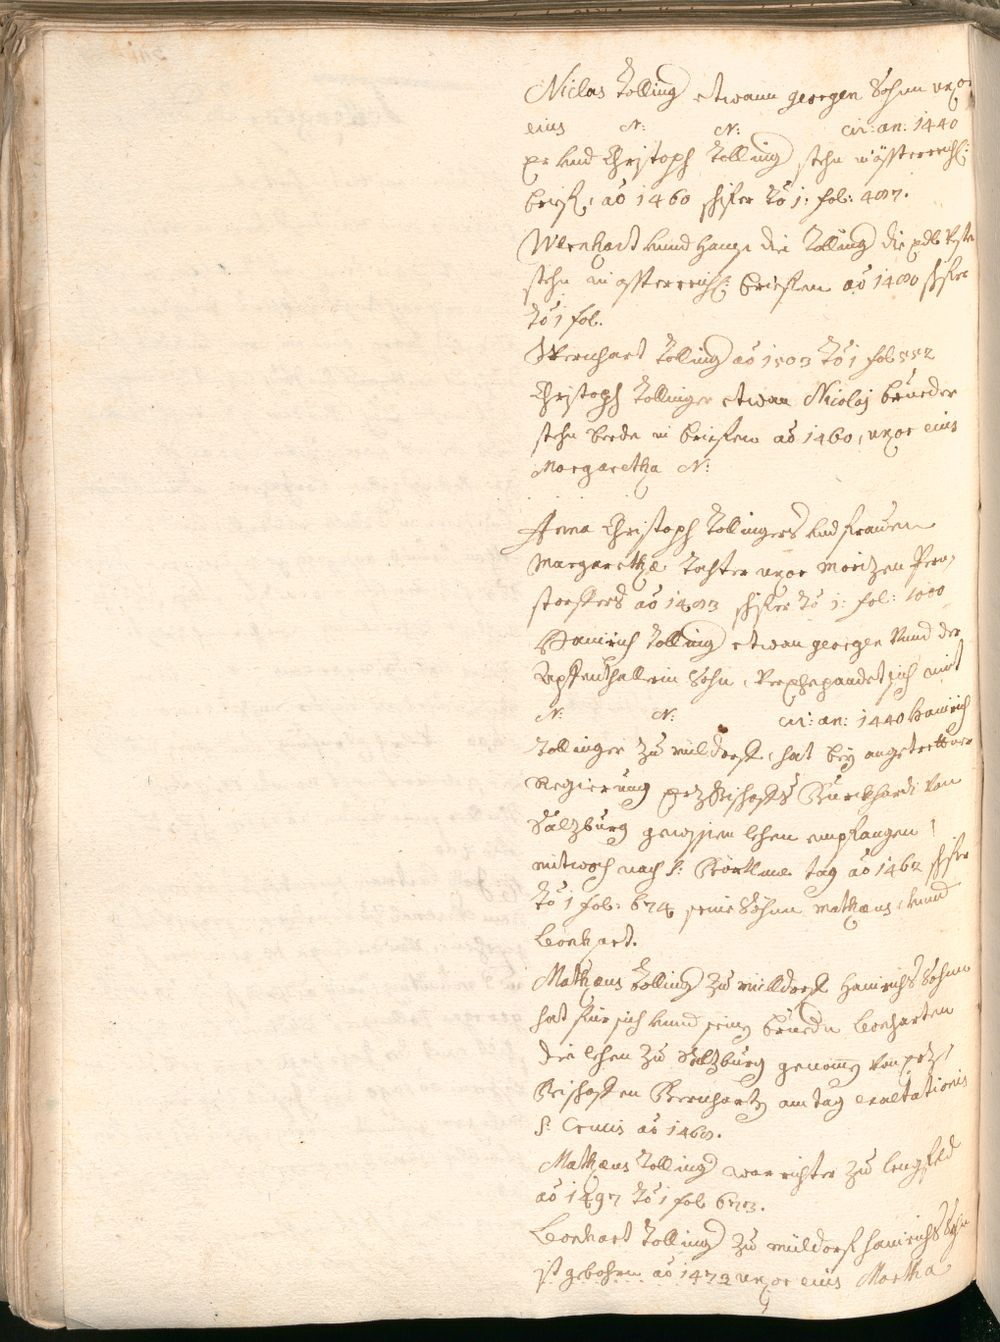 Niclas Tolling etwann georgen Sohnn uxor
eius N: N: cir: an: 1440
er vnd Christoph Tolling stehn in össterreich:
brief, aō 1460 schifer To i: fol: 487.
Wernhart vnnd Hanns die Tolling die edl Veste
stehn in össterreich: brieffen aō 1480 schifer
To i fol.
Wernhart Tolling aō 1503 To i fol 552
Christoph Tollinger etwan Nicolaj brueder
stehn beede in brieffen aō 1460, uxor eius
Margaretha N:
Anna Christoph Tollingers vnd frauen
Margarethæ Tochter uxor Moritzen Pern,
storffers aō 1483 schifer To i: fol: 1000
Hainrich Tolling etwan georgen Vnnd der
Apffenthallerin Sohn, Verehepaadet sich mit
N: N: cir: an: 1440 Hainrich
Tollinger zu müldorff, hat bey angetrettner
Regierung ertzbischoffs Burckhardi von
Salzburg gewissen lehen empfangen
mitwoch nach S: Bartlme tag aō 1462 schifer
To i fol: 674 seine Söhnn Mathæus, vnnd
Leonhart.
Mathæus Tolling zu mülldorff Hainrichs Sohnn
hat für sich vnnd seinen bruedern Leonharten
die lehen zu Salzburg genomen von ertz,
Bischoffen Bernhartn am tag exaltationis
S: Crucis aō 1468.
Mathæus Tolling war richter zu Lengfeld
aō 1497 To i fol 673.
Leonhart Tolling zu müldorf Hainrichs Sohn
ist gebohrn aō 1473 uxor eius Martha